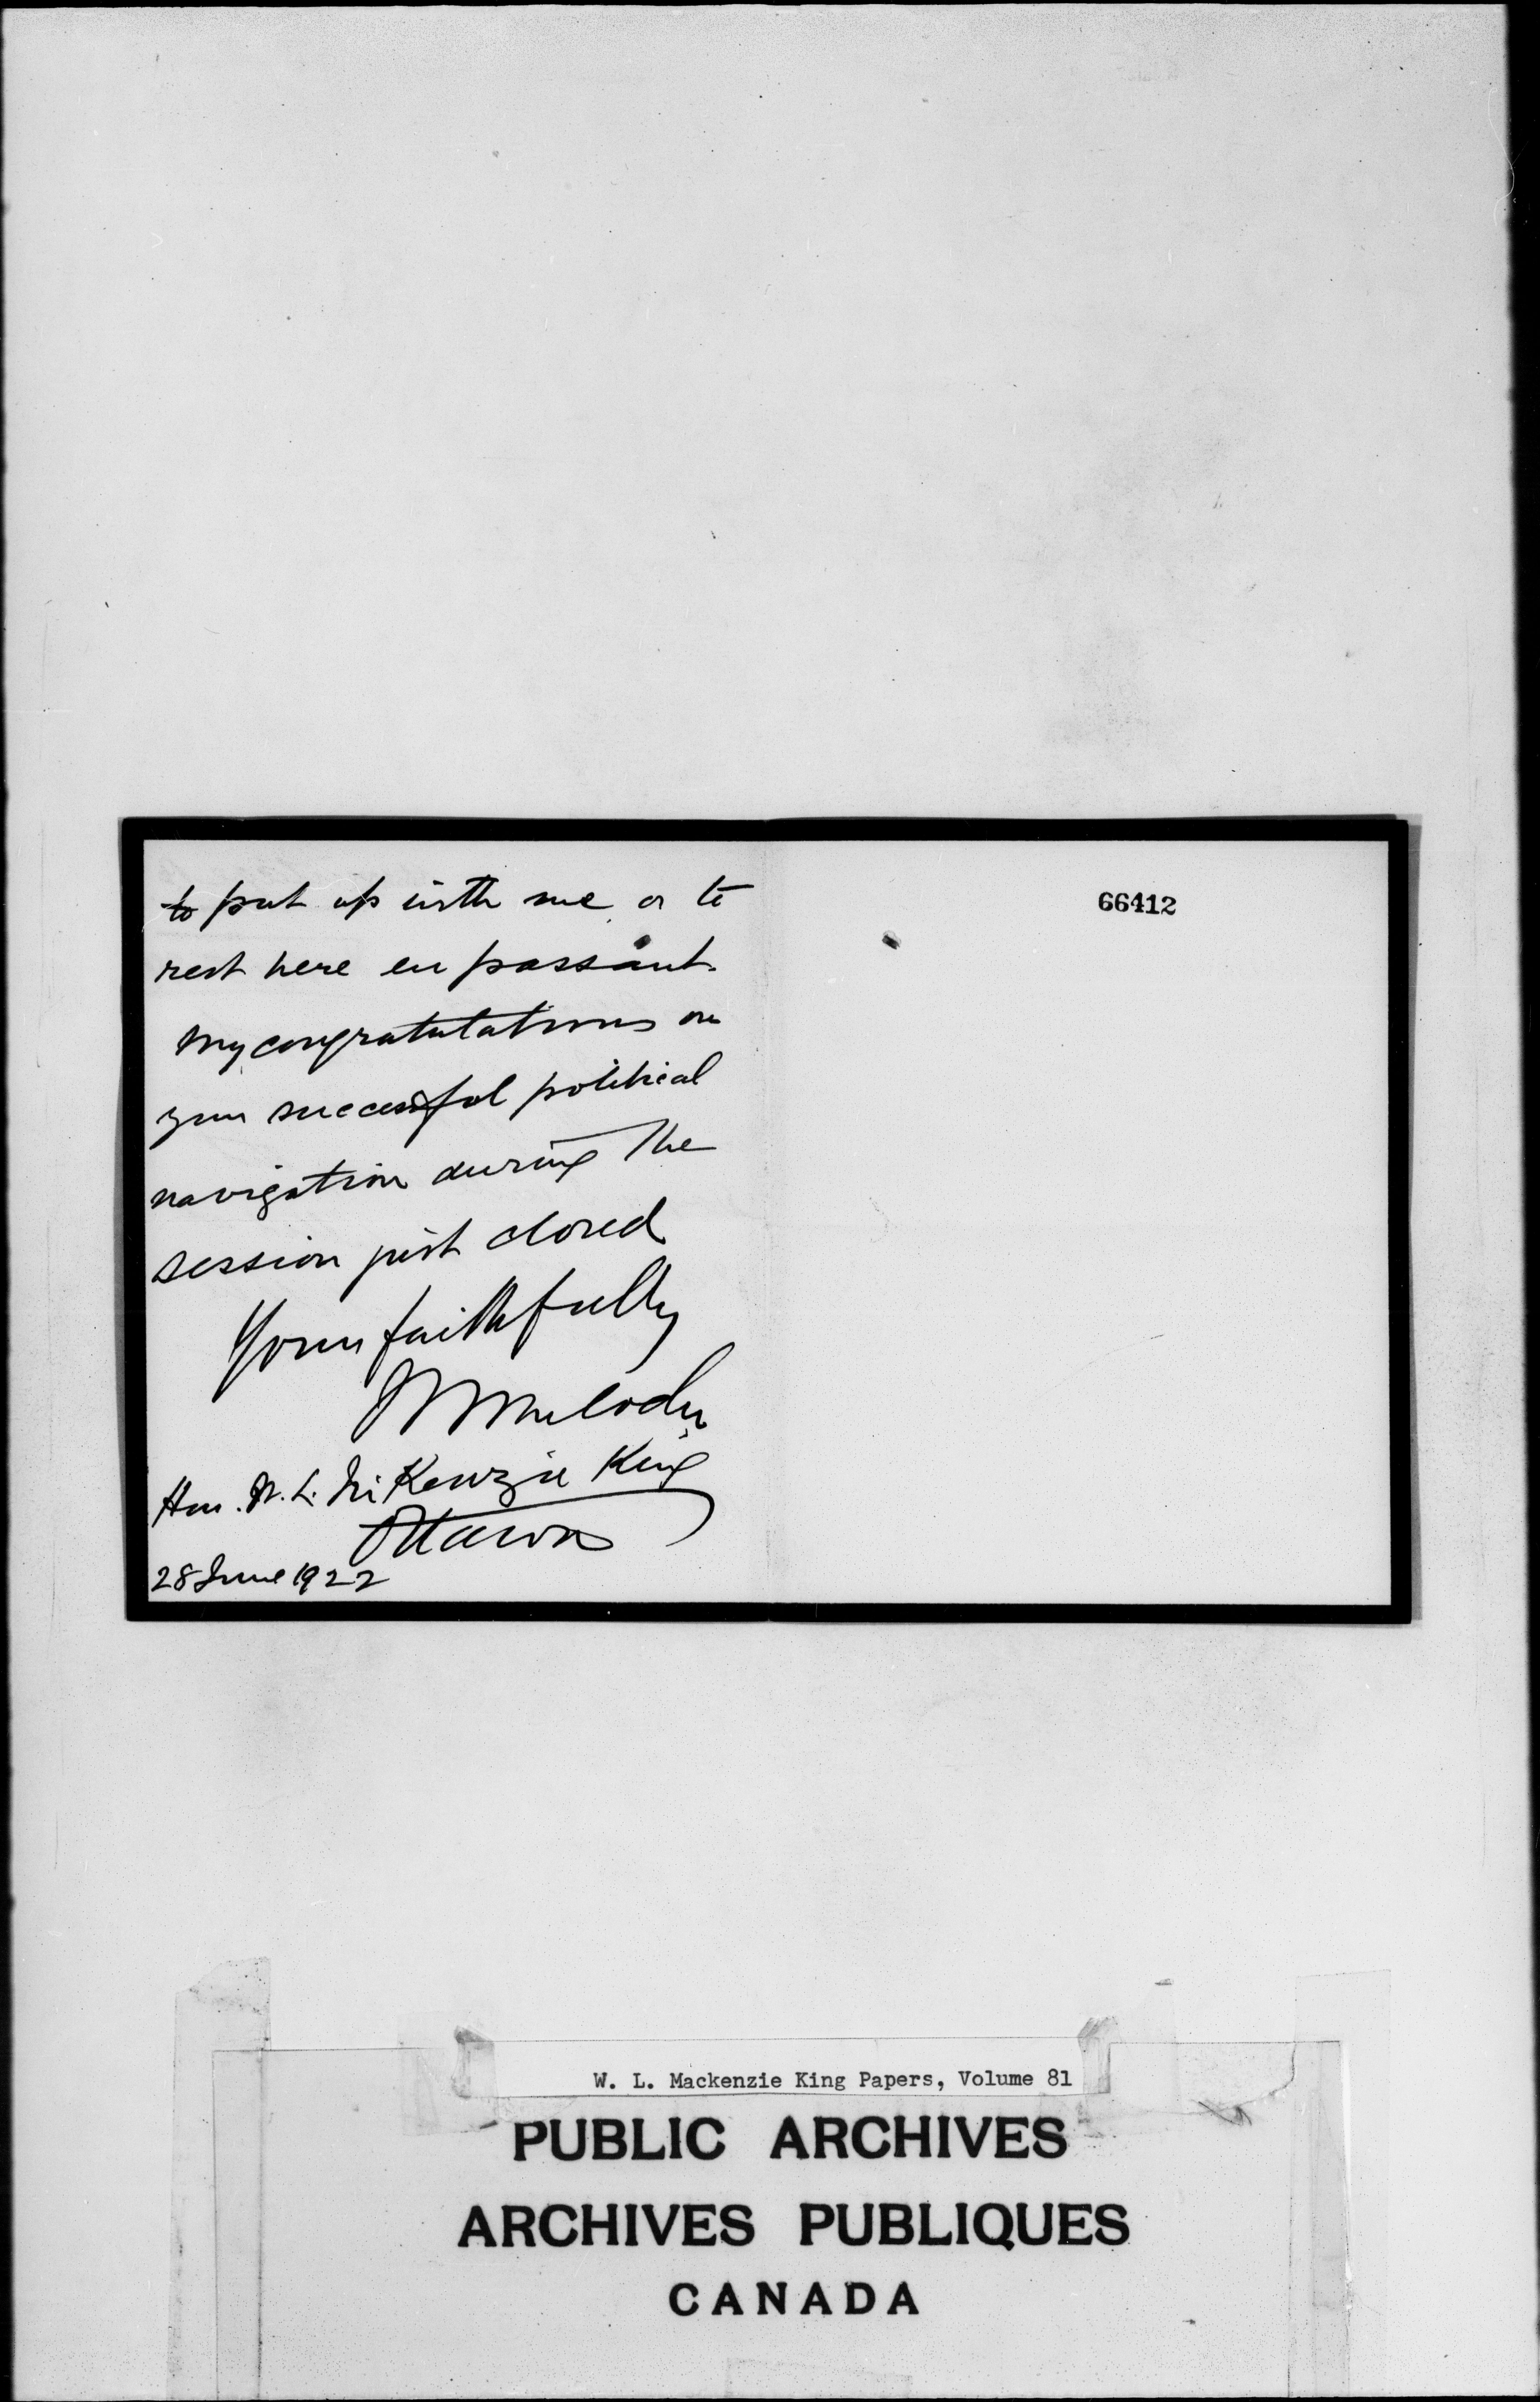 to put up with me or to
rest here en passant.
My congratulations on
your successful political
navigation during the
session just closed
Yours faithfully
Hon. W. L. McKenzie King
Ottawa
28 June 1922
66412
W. L. Mackenzie King Papers, Volume 81
PUBLIC ARCHIVES
ARCHIVES PUBLIQUES
CANADA